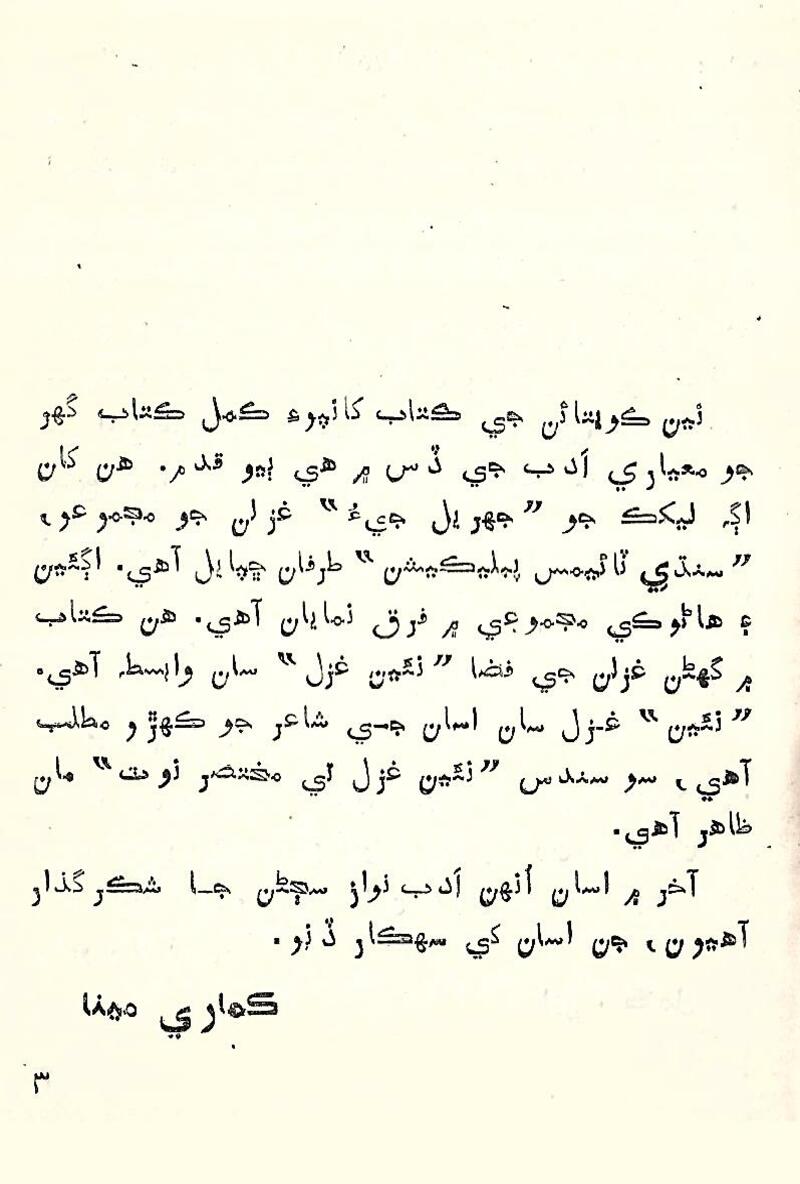 نين ڪويتائن جي ڪتاب کانپوءِ ڪمل ڪتاب گهر
جو معياري اَدب جي ڏس ۾ هي ٻيو قدم. هن کان
اڳ ليکڪ جو ”جهريل جيءُ“ غزلن جو مجموعو،
”سنڌي ٽائيمس پبليڪيشن“ طرفان ڇپايل آهي. اڳئين
۽ هاڻوڪي مجموعي ۾ فرق نمايان آهي. هن ڪتاب
۾ گهڻن غزلن جي فضا ”نئين غزل“ سان وابسطه آهي.
”نئين“ غزل سان اسان جي شاعر جو ڪهڙو مطلب
آهي، سو سندس ”نئين غزل تي مختصر نوٽ“ مان
ظاهر آهي.
آخر ۾ اسان اُنهن اَدب نواز سڄڻن جا شڪر گذار
آهيون، جن اسان کي سهڪار ڏنو.
ڪماري مينا
۳